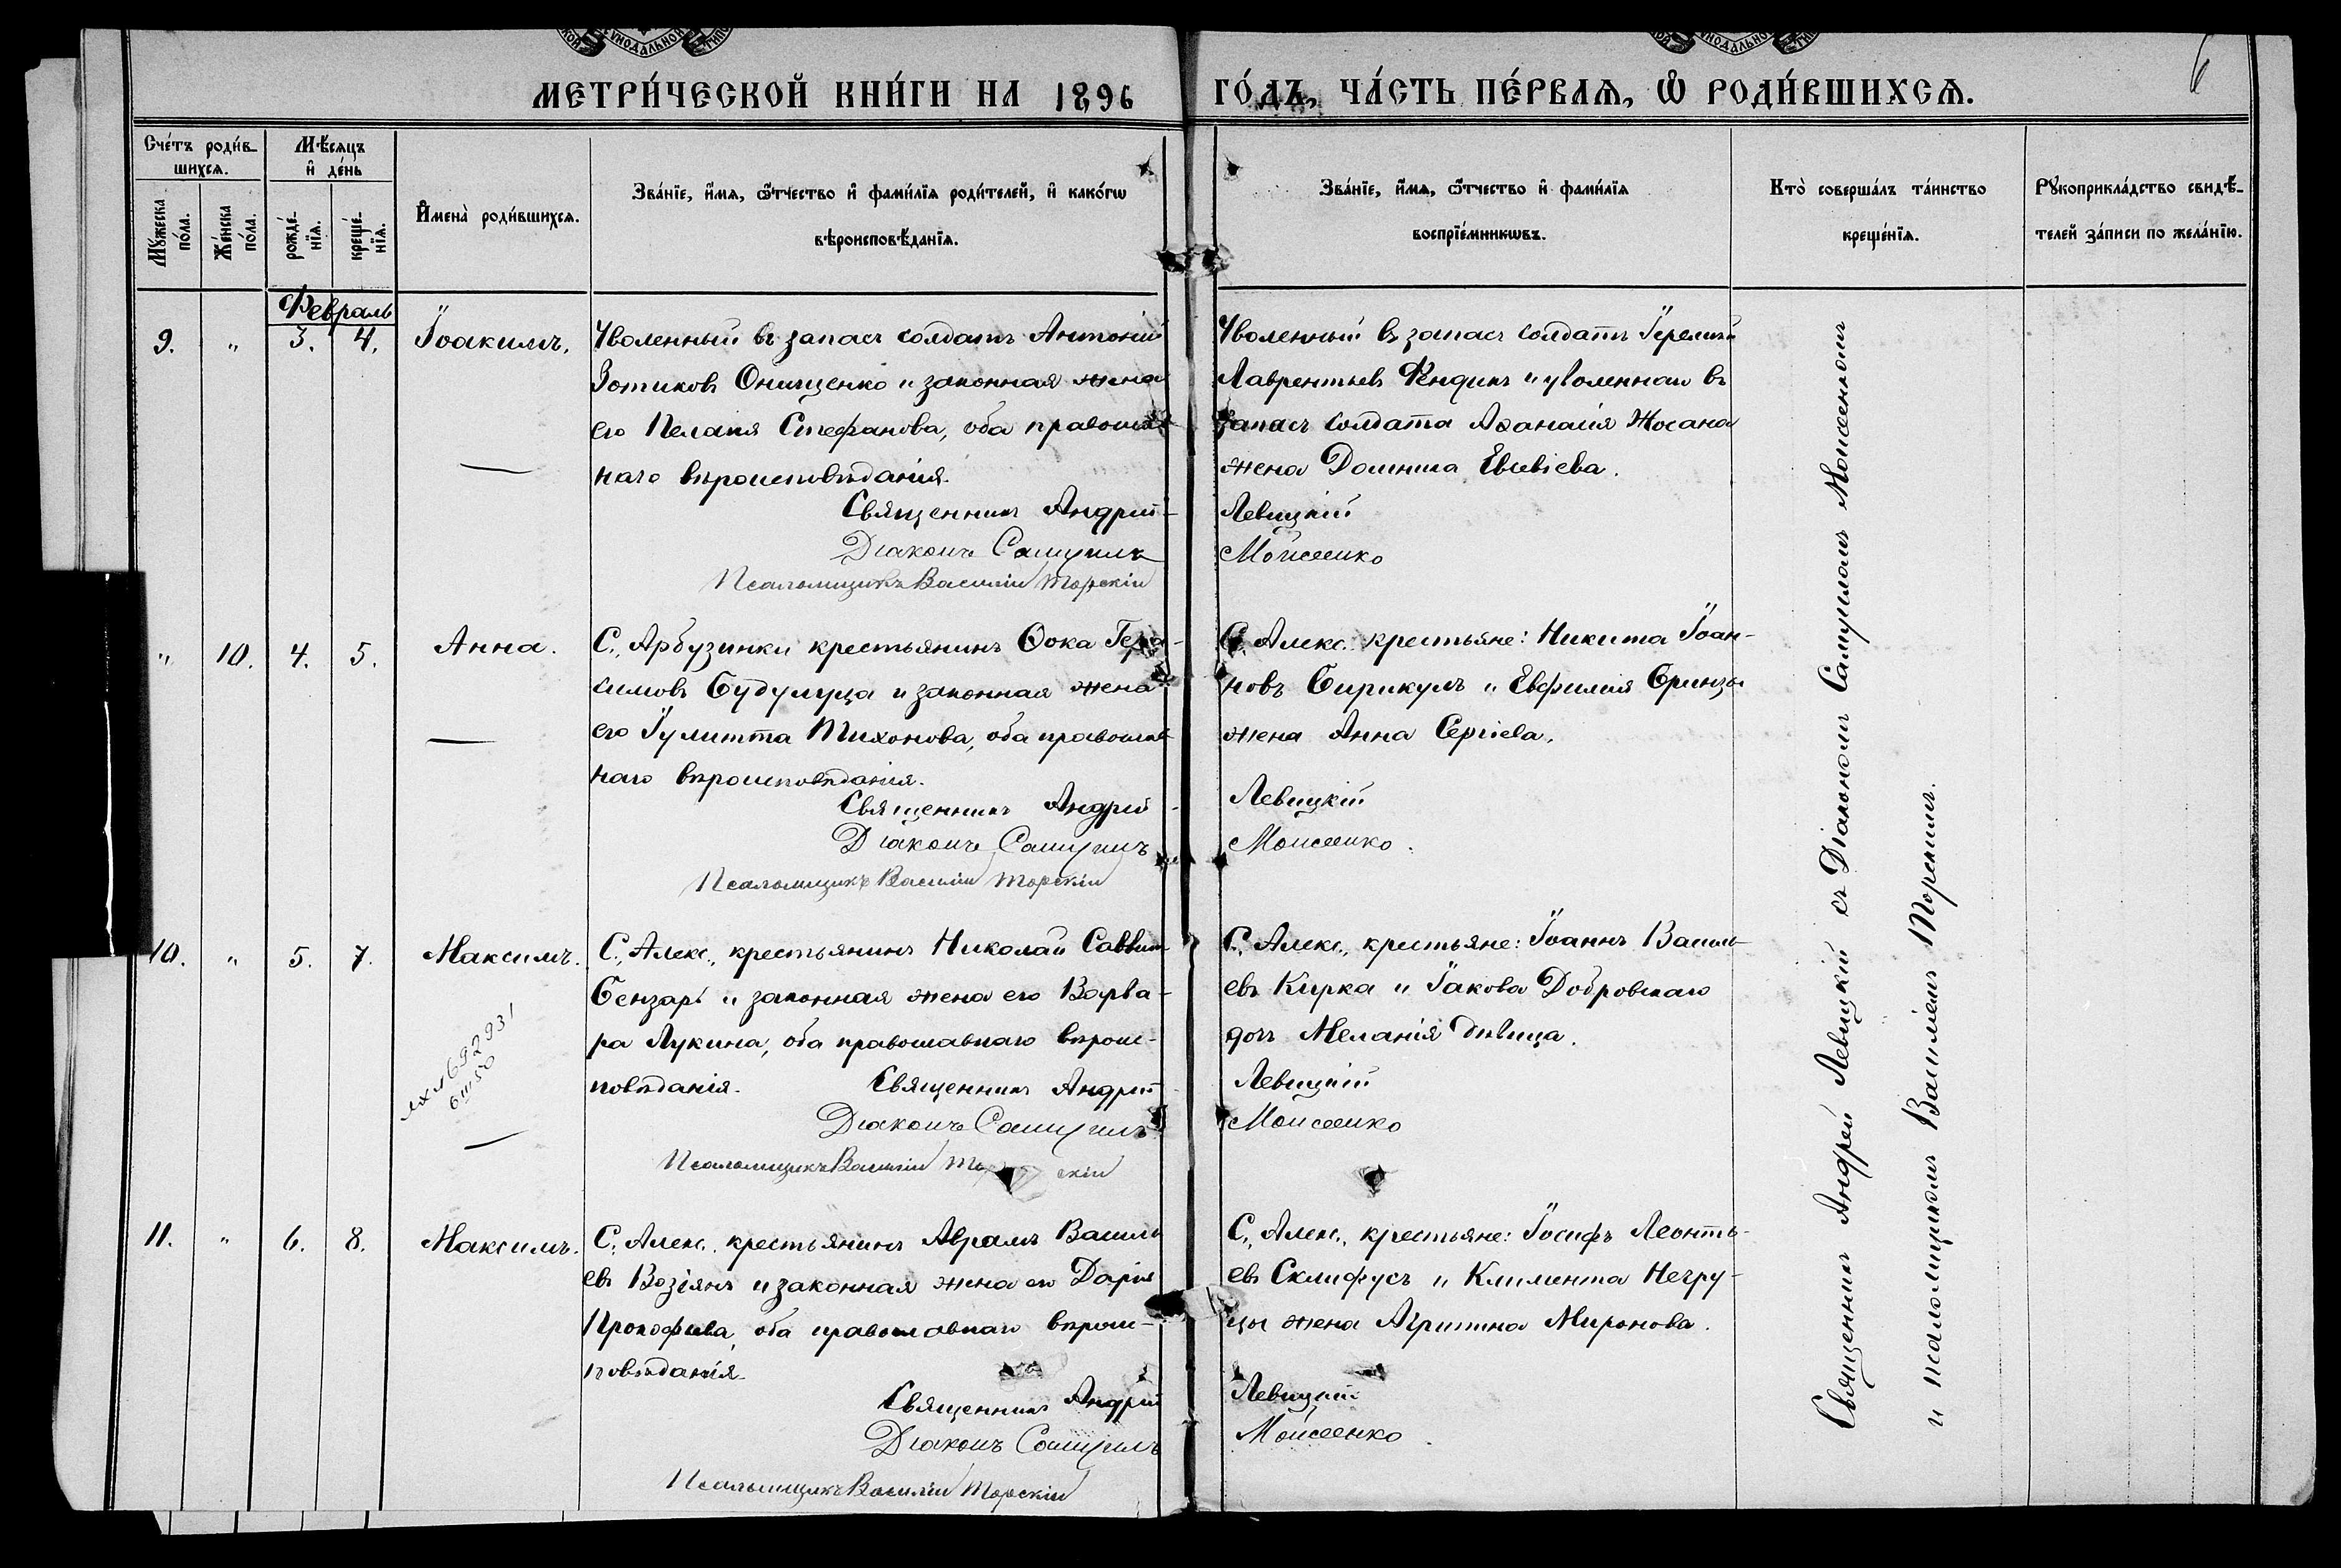 МЕТРИ́ЧЕСКОЙ КНИ́ГИ НА 1896 ГО́ДЪ, ЧА́СТЬ ПЕ́РВАѦ, Ѡ РОДИ́ВШИХСѦ.
6
Сче́тъ роди́в-
шихсѧ.
Мѣ́сѧцъ
и҆ де́нь
Мꙋ́жеска
по́ла.
Же́нска
по́ла.
рожде́-
нїѧ.
креще́-
нїѧ.
И҆мена̀ роди́вшихсѧ.
Зва́нїе, и҆́мѧ, ѻ҆́тчество и҆ фами́лїѧ роди́телей, и҆ како́гѡ
вѣроисповѣ́данїѧ.
Зва́нїе, и҆́мѧ, ѻ҆́тчество и҆ фами́лїѧ
воспрїе́мникѡвъ.
Кто̀ соверша́лъ та́инство
креще́нїѧ.
Рꙋкоприкла́дство свидѣ́-
телей за́писи по жела́нїю.
Февраль
9. " 3. 4. Іоакимъ.
Уволенный въ запасъ солдатъ Антоній
Зотиковъ Онищенко и законная жена
его Пелагія Стефанова, оба православ-
наго вѣроисповѣданія.
Священникъ Андрей
Діаконъ Самуилъ
Псаломщикъ Василій Торскій
Уволенный въ запасъ солдатъ Іеремій
Лаврентьевъ и уволеннаго въ
запасъ солдата Аѳанасія Жосана
жена Домника Евсевіева.
Левицкій
Моисеенко
" 10. 4. 5. Анна.
С. Арбузинки крестьянинъ Ѳока Гера-
симовъ Будулуца и законная жена
его Іулитта Тихонова, оба православ-
наго вѣроисповѣданія.
Священникъ Андрей
Діаконъ Самуилъ
Псаломщикъ Василій Торскій
С. Алекс. крестьяне: Никита Іоан-
новъ Бирикулъ и Евфимія Бринзы
жена Анна Сергіева.
Левицкій
Моисеенко.
10. " 5. 7. Максимъ.
С. Алекс., крестьянинъ Николай Саввин
Бензарь и законная жена его Варва-
ра Лукина, оба православнаго вѣроис-
повѣданія. Священникъ Андрей
Діаконъ Самуилъ
Псаломщикъ Василій Торскій
692931
С. Алекс., крестьяне: Іоаннъ Василь-
евъ Кирка и Іакова Добровскаго
дочь Меланія дѣвица.
Левицкій
Моисеенко
11. " 6. 8. Максимъ.
С. Алекс. крестьянинъ Аврамъ Василь
евъ Возіянъ и законная жена его Дарія
Прокофіева, оба православнаго вѣроис-
повѣданія.
Священникъ Андрей
Діаконъ Самуилъ
Псаломщикъ Василій Торскій
С. Алекс., крестьяне: Іосифъ Леонть-
евъ Склифусъ и Климента Негру-
цы жена Агрипина Миронова.
Левицкій
Моисеенко.
Священникъ Андрей Левицкій съ Діакономъ Самуиломъ Моисеенкомъ
и псаломщикомъ Василіемъ Торскимъ.